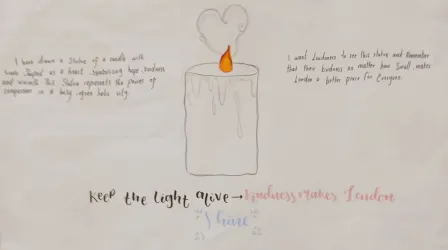 I have drawn a statue of a candle with
smoke shaped as a heart, symbolising hope, kindness
and warmth. This statue represents the power of
compassion in a busy, often hectic city.
I want Londoners to see this statue and Remember
that their kindness no matter how Small, makes
London a better place for Everyone.
Keep the light alive → kindness Makes London
Shine